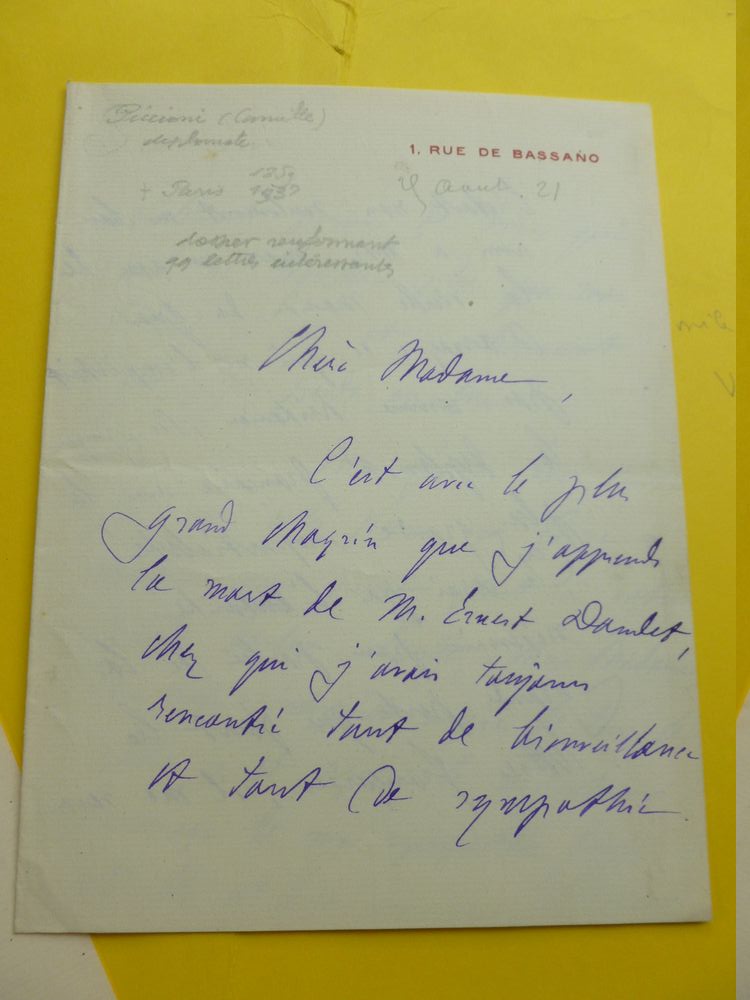 Piccioni (Camille)
diplomate
1. RUE DE BASSANO
+ Paris
août. 21
dossier renfermant
lettres intéressantes
Chère Madame,
C'est avec le plus
grand chagrin que j'apprends
la mort de M. Ernest Daudet,
chez qui j'avais toujours
rencontré tant de bienveillance
et tant de sympathie.